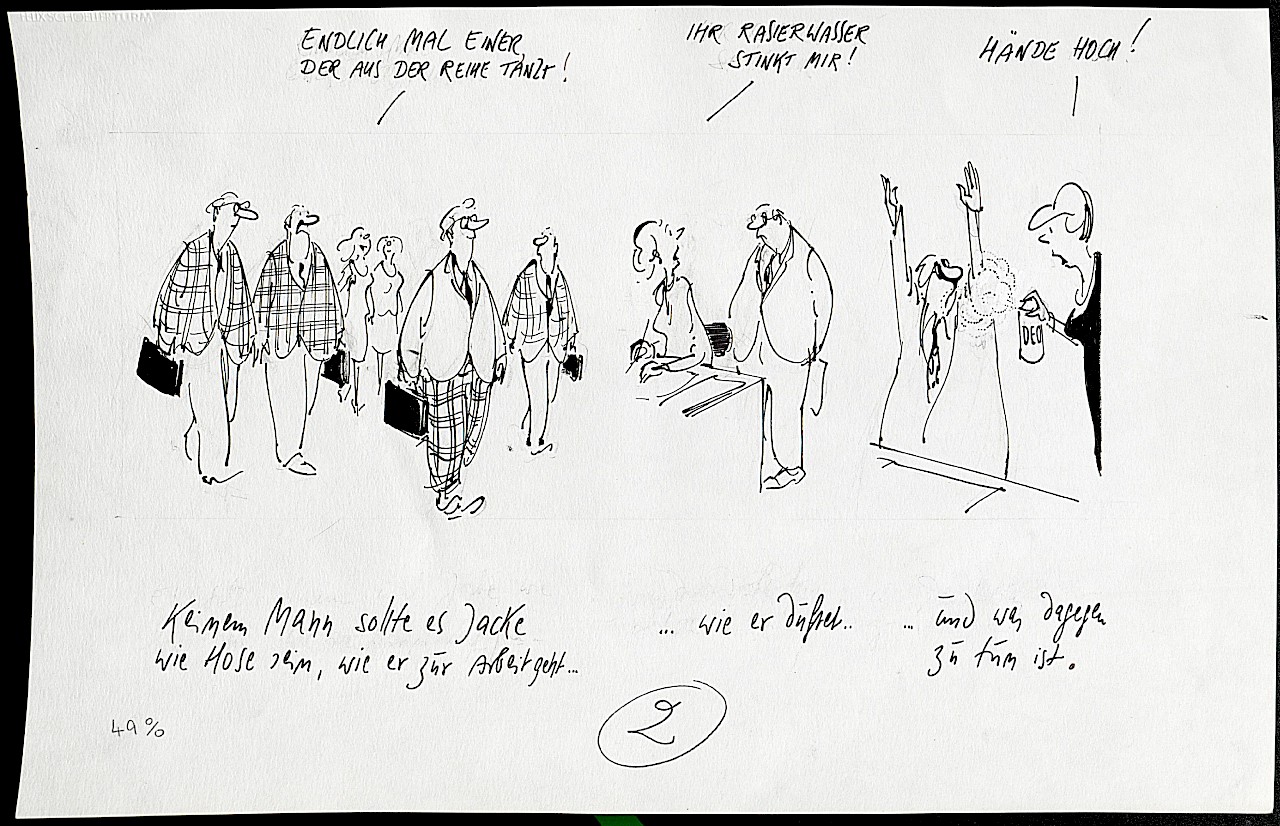 FELIX SCHOELLER TURM
ENDLICH MAL EINER,
DER AUS DER REIHE TANZT!
IHR RASIERWASSER
STINKT MIR!
HÄNDE HOCH!
DEO
Keinem Mann sollte es Jacke
wie Hose sein, wie er zur Arbeit geht...
... wie er duftet..
... und was dagegen
zu tun ist.
49%
2